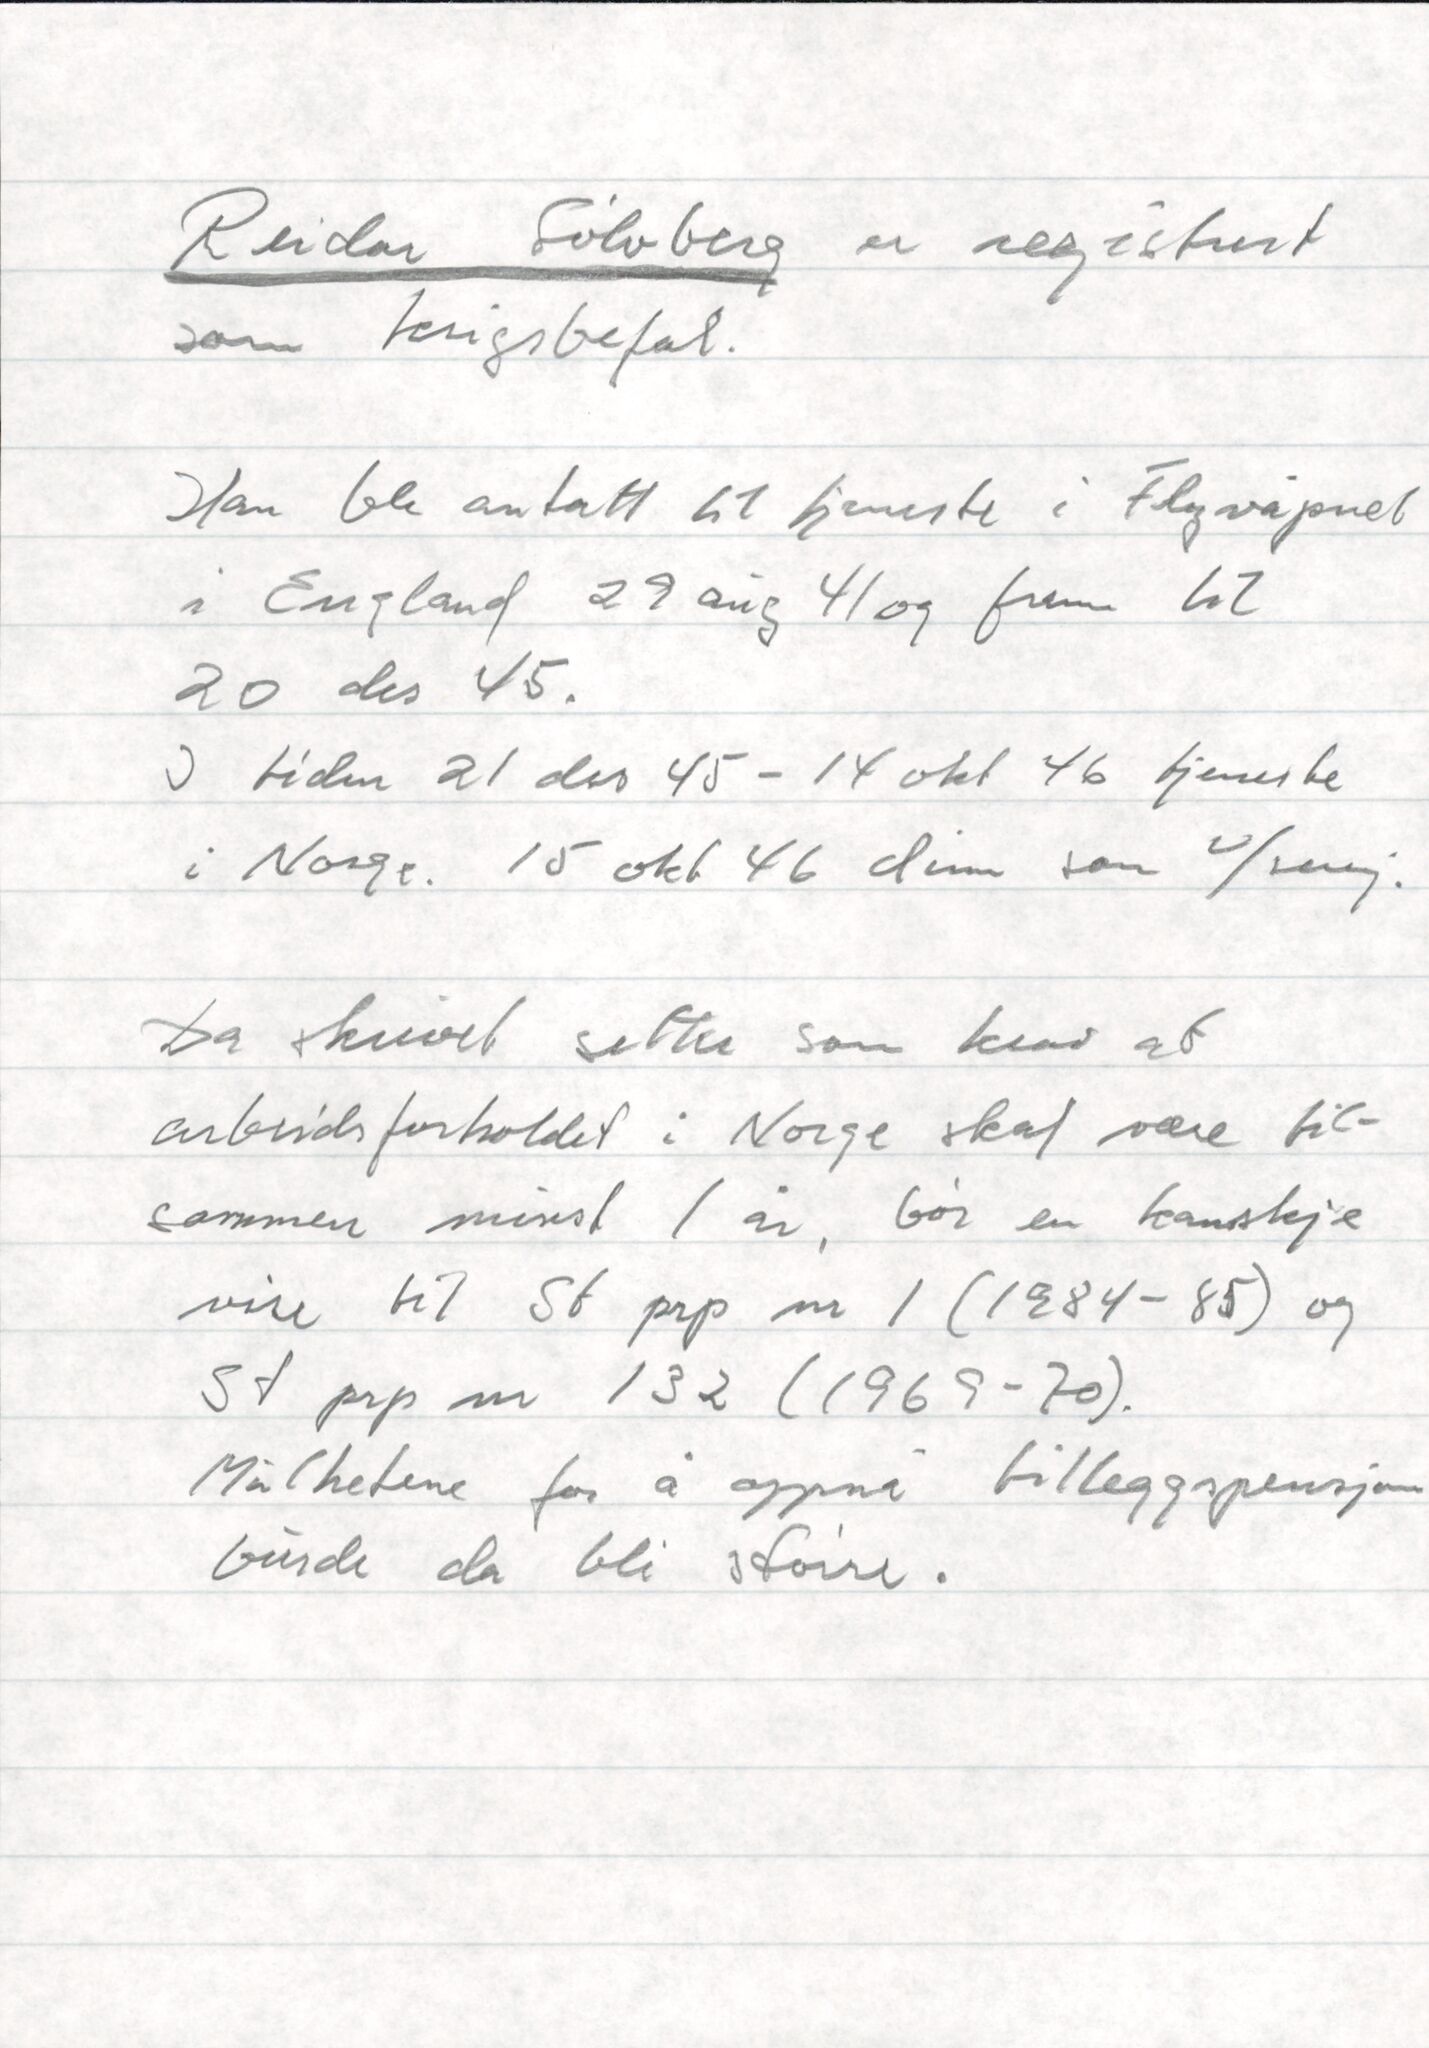 Reidar Sølvberg er registrert
som krigsbefal.
Han ble antatt til tjeneste i Flyvåpnet
i England 29 aug 41 og fram til
20 des 45.
I tiden 21 des 45 - 14 okt 46 tjeneste
i Norge. 15 okt 46 dim som
Da skrivet setter som krav at
arbeidsforholdet i Norge skal være til-
sammen minst 1 år, bør en kanskje
vise til St prp nr 1 (1984-85) og
St prp nr 132 (1969-70).
for å oppnå tilleggspensjon
burde da bli større.